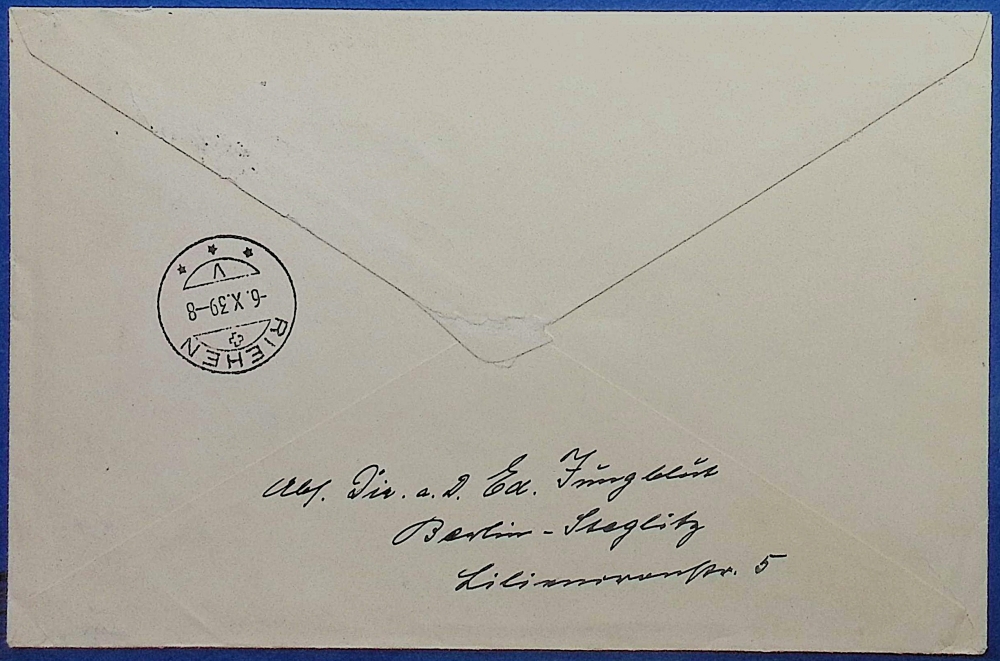 V
-6.X.39-8
RIEHEN
Abs. Dir. a. D. Ed. Jungblut
Berlin-Steglitz
Liliencronstr. 5